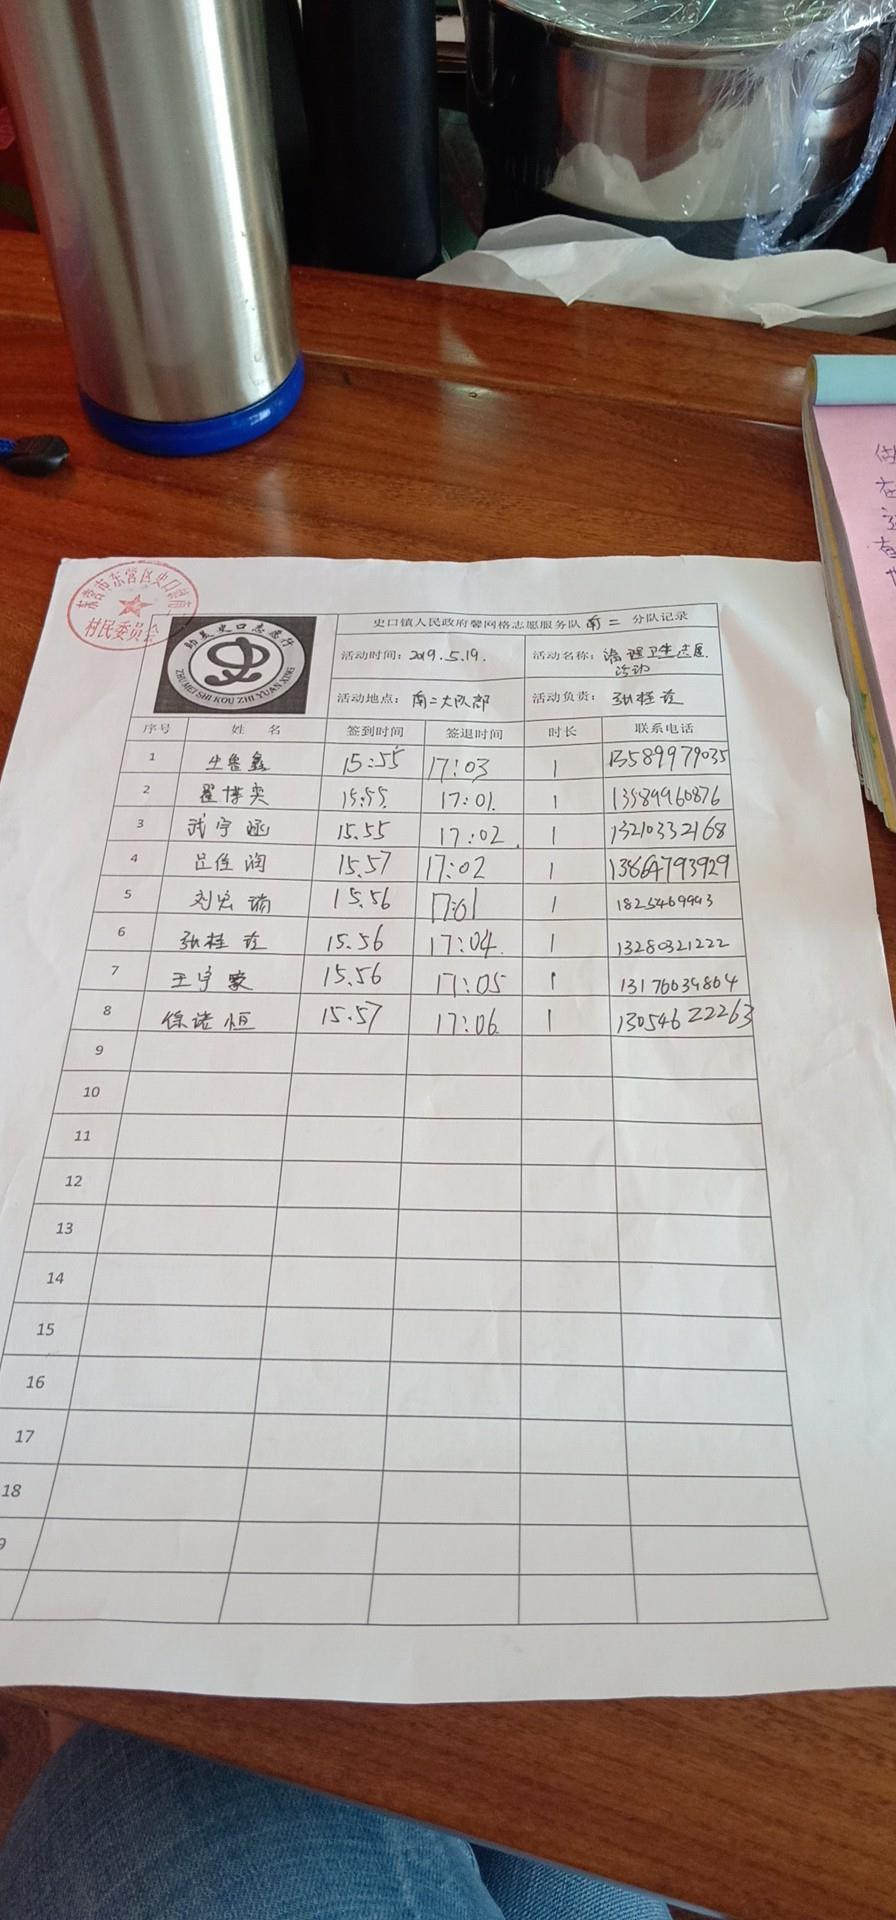 东营市东营区史口镇南二
村民委员会
助美史口志愿行
ZHU MEI SHI KOU ZHI YUAN XING
史口镇人民政府馨网格志愿服务队 南二 分队记录
活动时间：2019.5.19. 活动名称：清理卫生志愿
活动
活动地点：南二大队部 活动负责：张桂
序号 姓 名 签到时间 签退时间 时长 联系电话
1 鑫 15:55 17:03 1 13589979035
2 翟博奕 15:55. 17:01. 1 13589960876
3 武宇涵 15.55 17:02. 1 13210332168
4 吕佳润 15.57 17:02 1 13864793929
5 刘宏瑞 15.56 17:01 1 1825469993
6 张桂 15.56 17:04. 1 13280321222
7 王宇豪 15.56 17:05 1 13176034804
8 徐诺恒 15.57 17:06. 1 13054622263
9
10
11
12
13
14
15
16
17
18
9